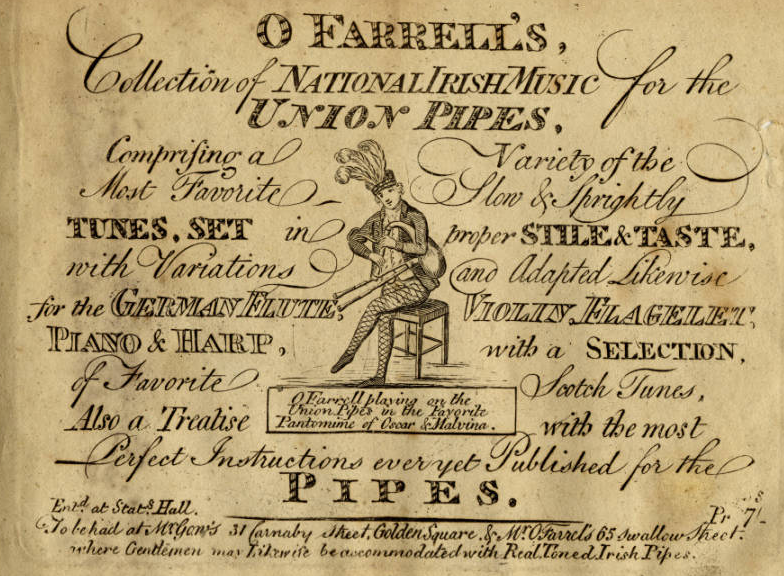 O FARRELL'S,
Collection of NATIONAL IRISH MUSIC for the
UNION PIPES,
Comprising a Variety of the
Most Favorite Slow & Sprightly
TUNES, SET in proper STILE & TASTE,
with Variations and Adapted Likewise
for the GERMAN FLUTE, VIOLIN, FLAGELET,
PIANO & HARP, with a SELECTION,
of Favorite Scotch Tunes,
Also a Treatise with the most
O Farrell playing on the
Union Pipes in the Favorite
Pantomime of Oscar & Malvina.
Perfect Instructions ever yet Published for the
PIPES.
Entd. at Stats. Hall. Pr 7s/-
To be had at Mr Gow's 31 Carnaby street, Golden Square, & Mr. O Farrel's 65 swallow Street.
where Gentlemen may Likewise be accommodated with Real Toned Irish Pipes.